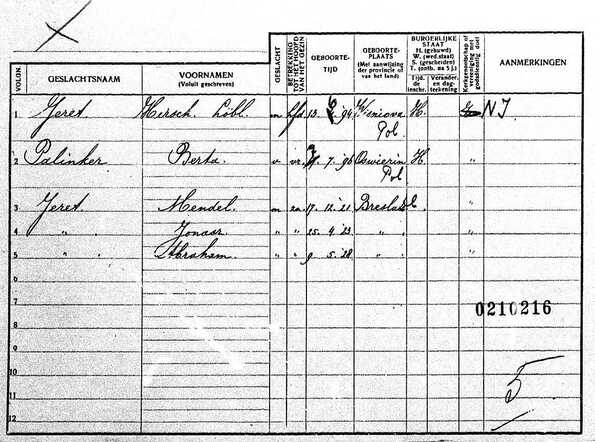 VOLGN.
GESLACHTSNAAM
VOORNAMEN
(Voluit geschreven)
GESLACHT
BETREKKING TOT HET HOOFD VAN HET GEZIN
GEBOORTE-
TIJD
GEBOORTE-
PLAATS
(Met aanwijzing der provincie of van het land)
BURGERLIJKE
STAAT
H. (gehuwd)
W. (wed.staat)
S. (gescheiden)
T. (ontb. na 5 j.)
Tijd. de inschr.
Verander. en dag-teekening
Kerkgenootschap of vereeniging met godsdienstig doel
AANMERKINGEN
1 Jeret Hirsch Löbl. m hfd 13 '94 Wisniova Pol H. NI
2 Palinker Berta. v. vr. 7. '96 Oswiecim Pol H "
3 Jeret Mendel. m zn 17. 12. '21 Breslau "
4 " " Jonas. " " 25. 4 '23 " "
5 " " Abraham. " " 9. 5. '28 " "
6
7
8
9
10
11
12
0210216
5